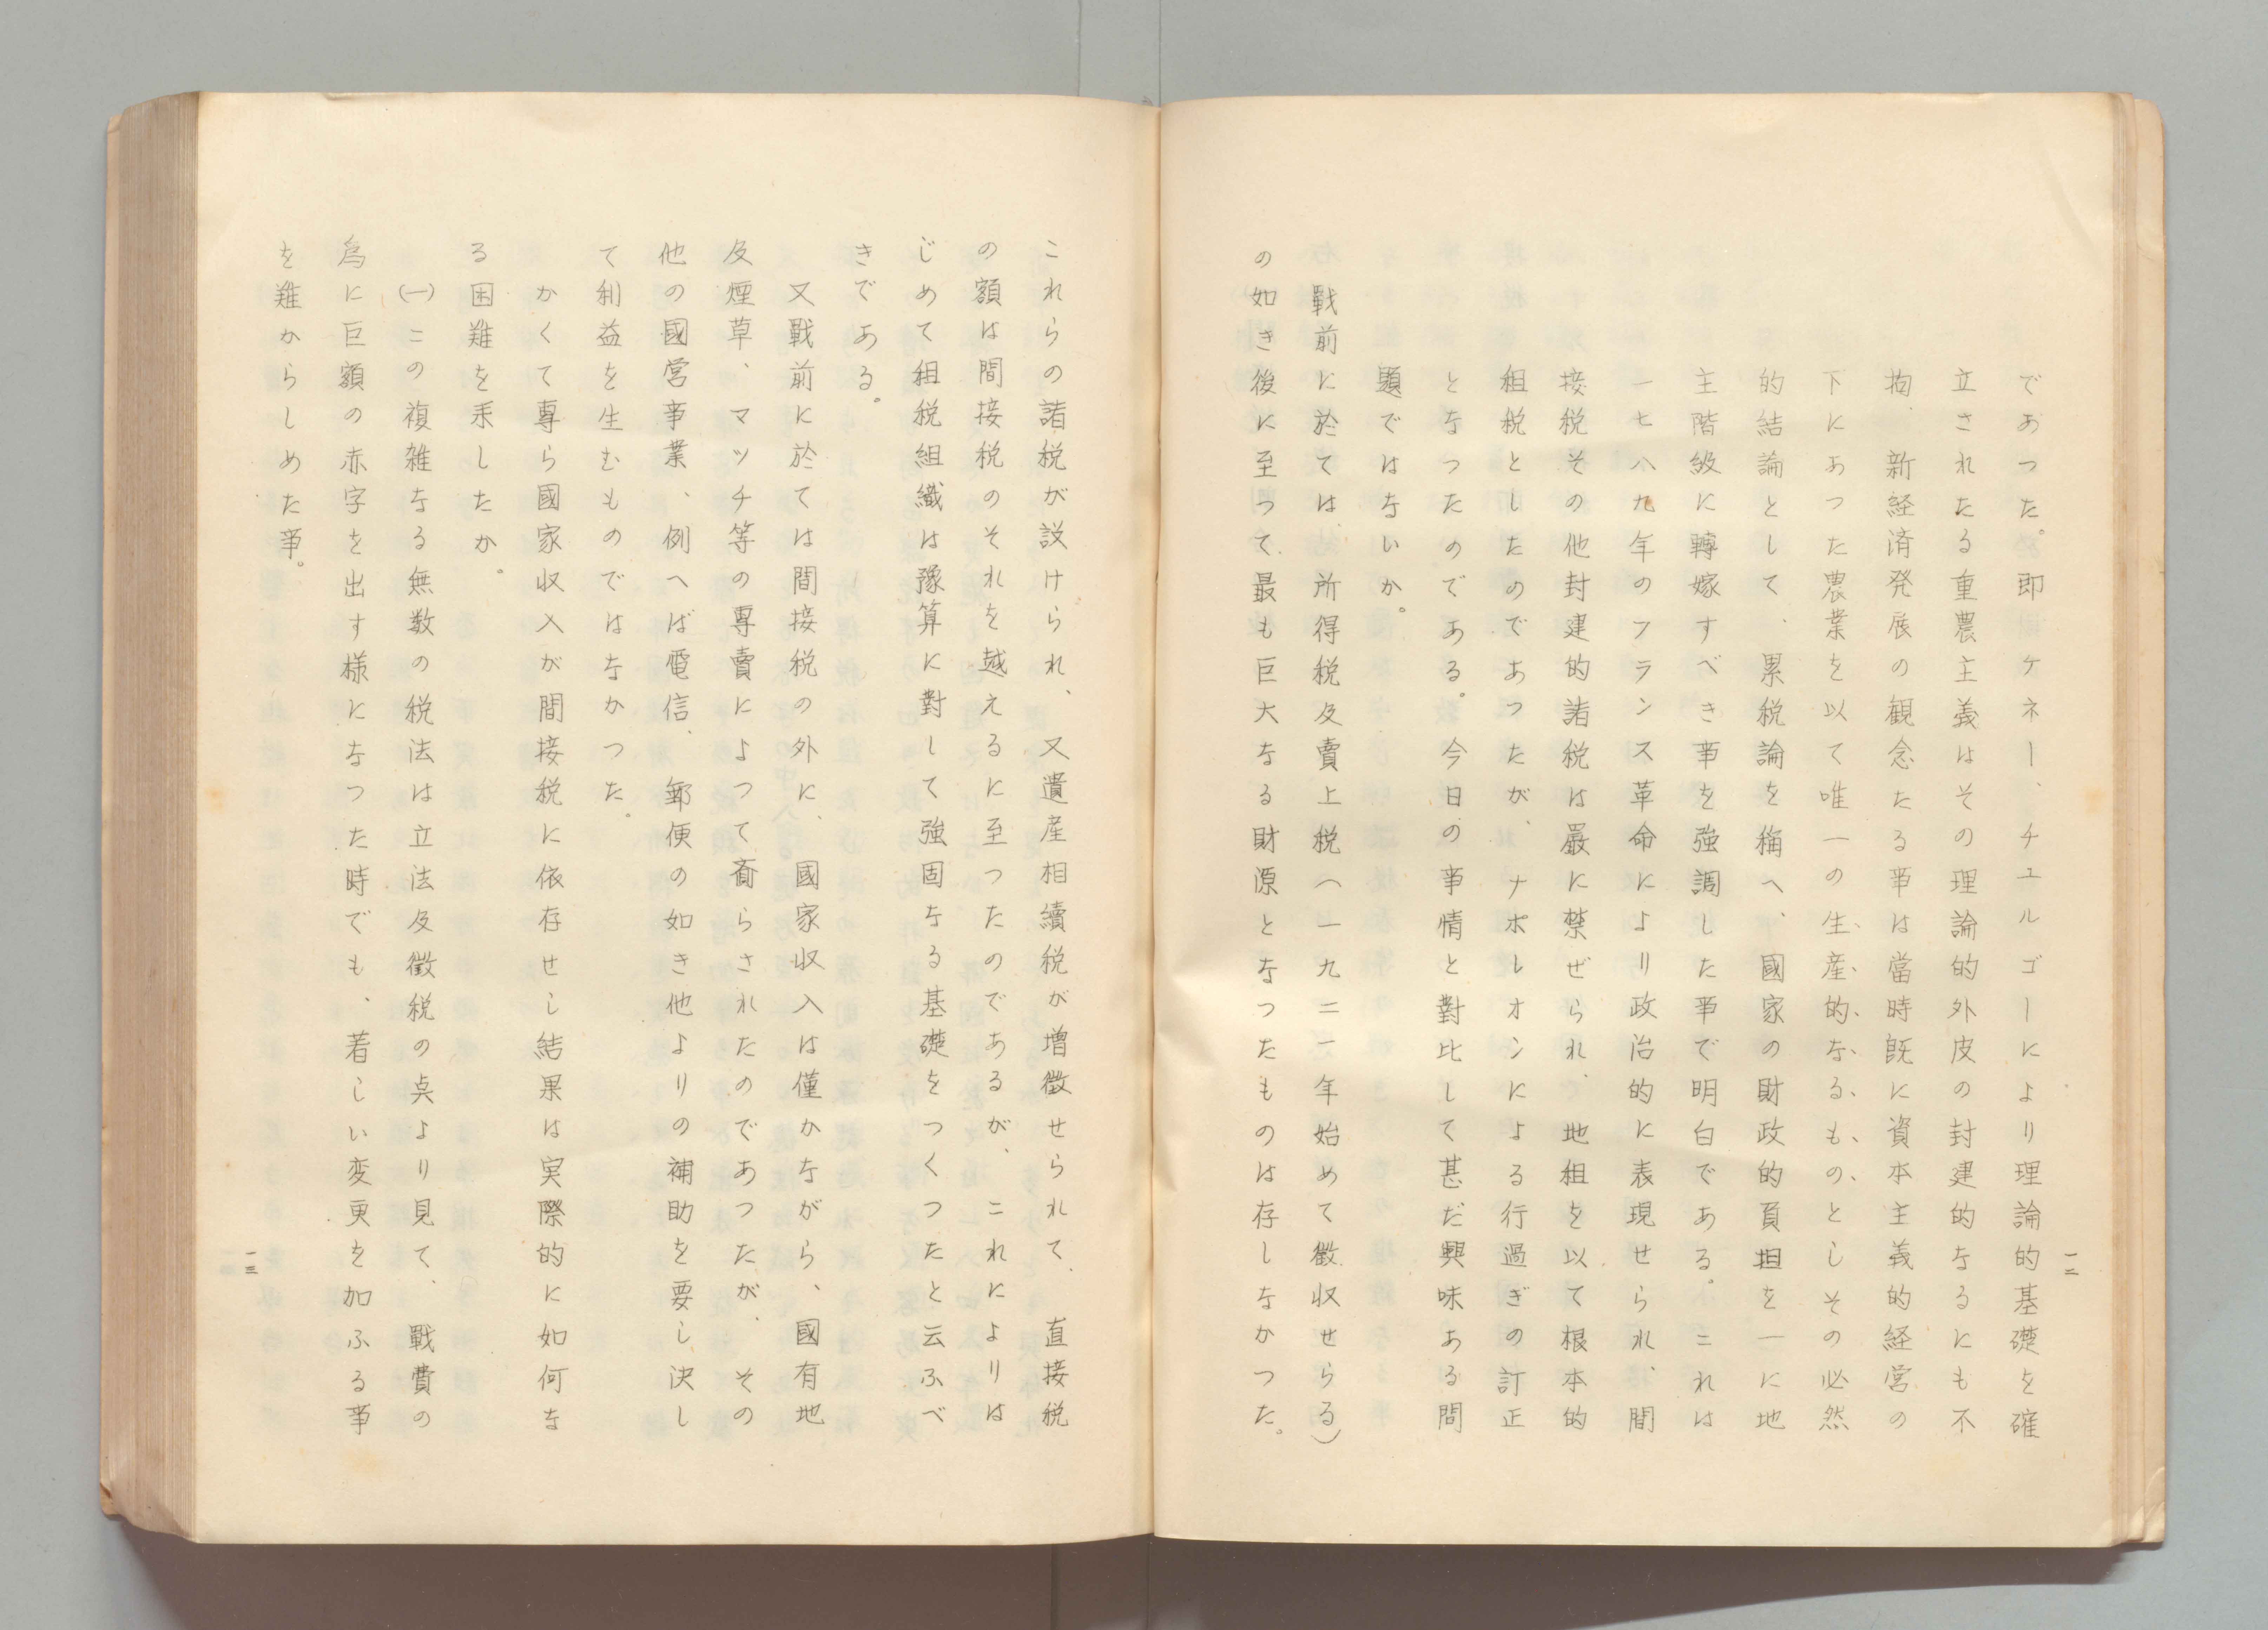 一二
であつた。即ケネー、チユルゴーにより理論的基礎を確
立されたる重農主義はその理論的外皮の封建的なるにも不
拘、新経済発展の観念たる事は當時既に資本主義的経営の
下にあつた農業を以て唯一の生産的なるものとしその必然
的結論として、累税論を稱へ、國家の財政的負担を一に地
主階級に轉嫁すべき事を強調した事で明白である。これは
一七八九年のフランス革命により政治的に表現せられ、間
接税その他封建的諸税は嚴に禁ぜられ、地租を以て根本的
租税としたのであつたが、ナポレオンによる行過ぎの訂正
となつたのである。今日の事情と對比して甚だ興味ある問
題ではないか。
戰前に於ては所得税及賣上税(一九二一年始めて徴収せらる)
の如き後に至つて最も巨大なる財源となつたものは存しなかつた。
これらの諸税が設けられ、又遺産相續税が増徴せられて、直接税
の額は間接税のそれを越えるに至つたのであるが、これによりは
じめて租税組織は豫算に對して強固なる基礎をつくつたと云ふべ
きである。
又戰前に於ては間接税の外に、國家収入は僅かながら、國有地
及煙草、マッチ等の専賣によつて齎らされたのであつたが、その
他の國営事業、例へば電信、郵便の如き他よりの補助を要し決し
て利益を生むものではなかつた。
かくて専ら國家収入が間接税に依存せし結果は実際的に如何な
る困難を来したか。
(一)この複雑なる無数の税法は立法及徴税の点より見て、戰費の
為に巨額の赤字を出す様になつた時でも、着しい変更を加ふる事
を難からしめた事。
一三